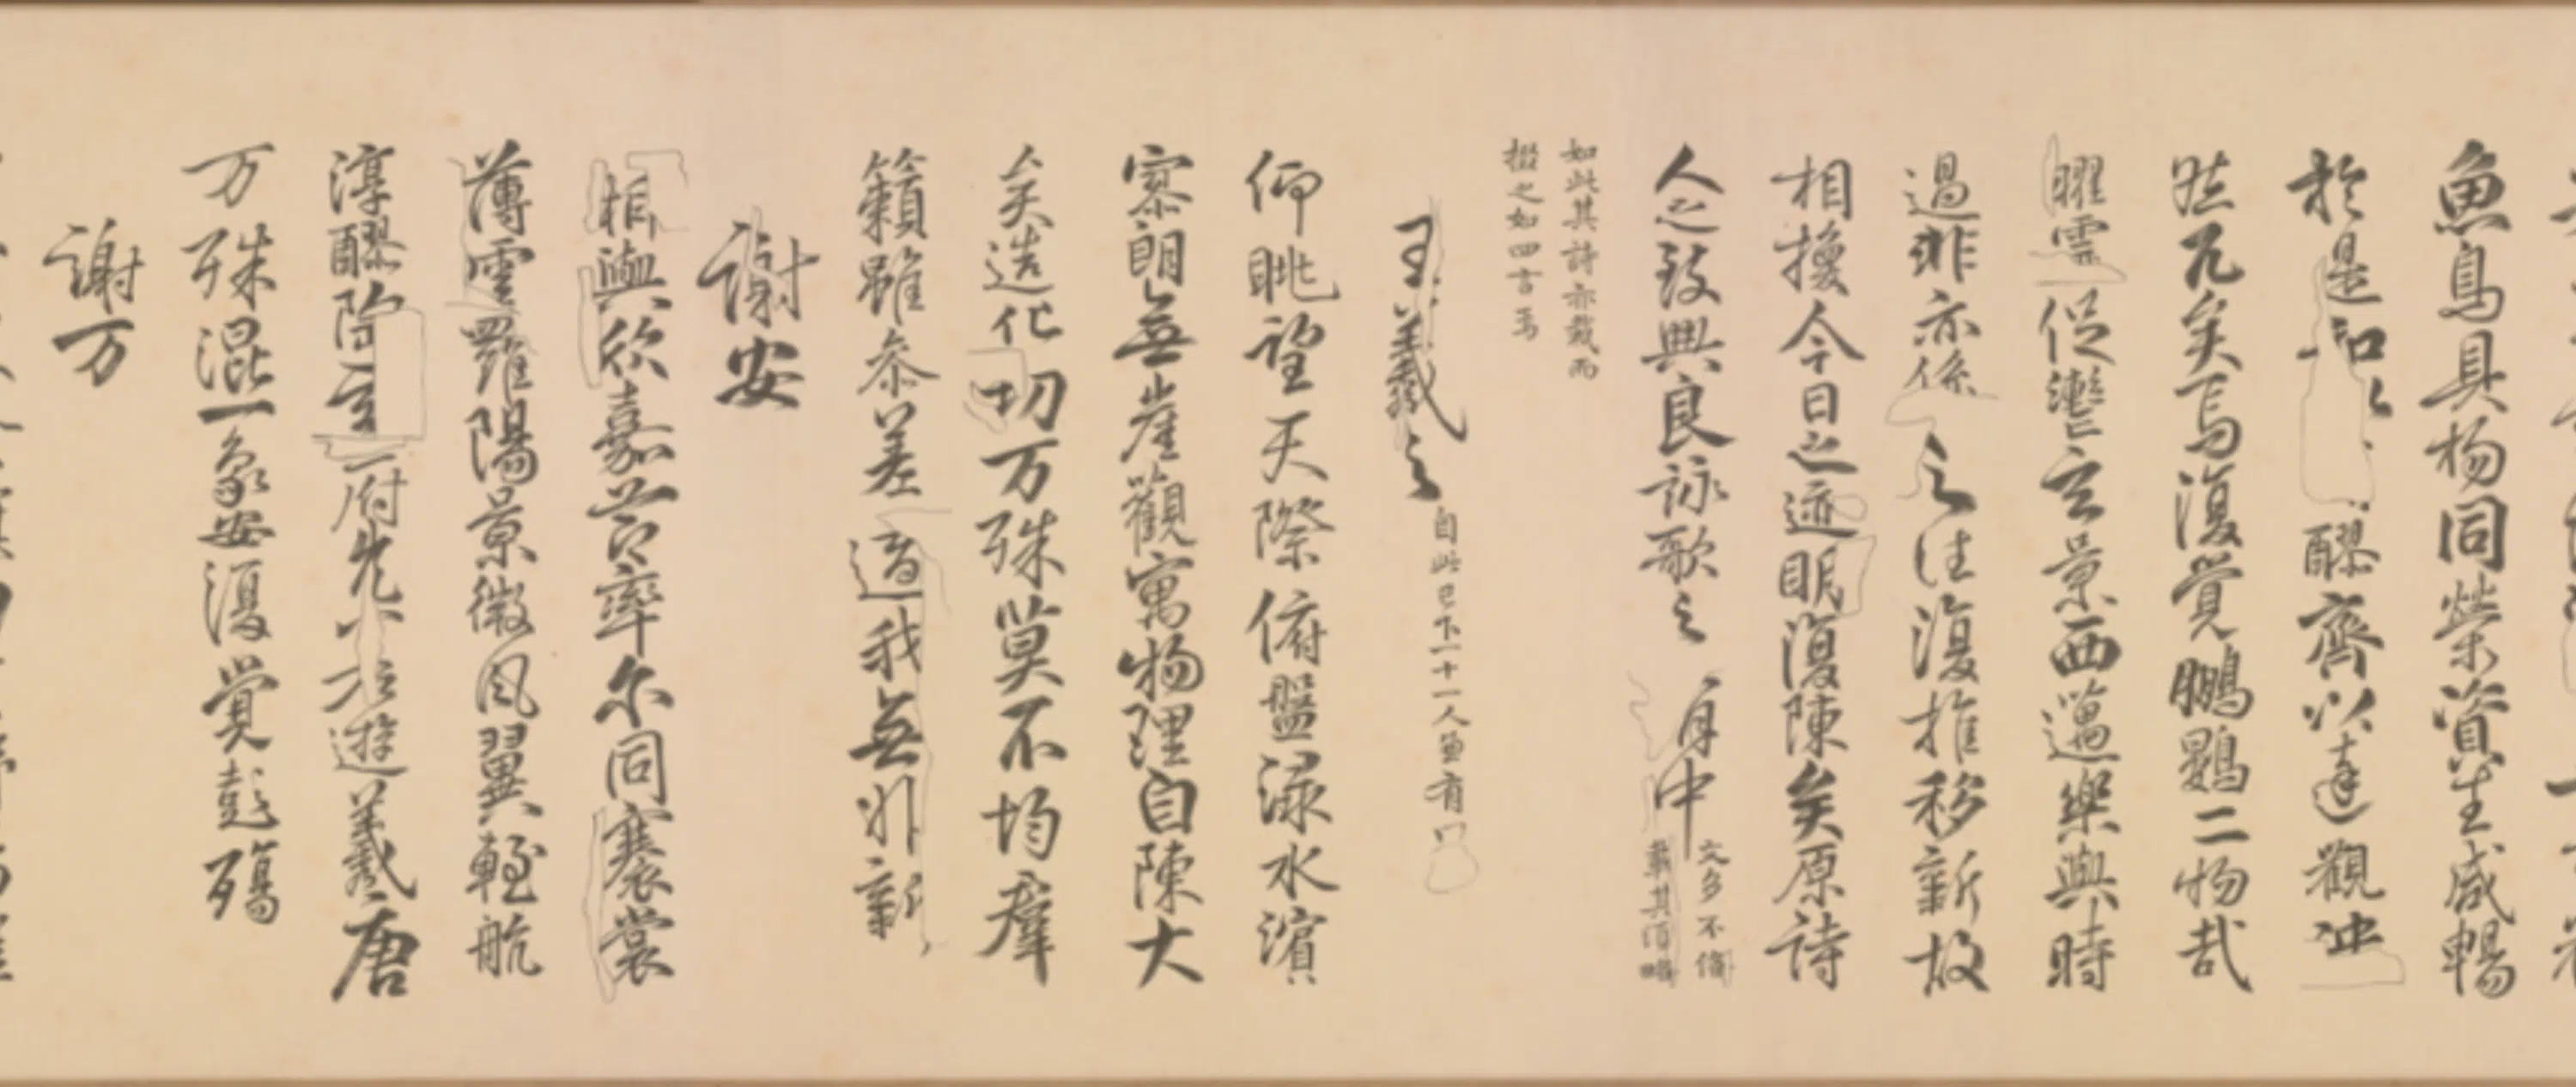 魚鳥具揚同榮資生咸暢
於是和醪齊以達觀冲
然兀矣焉復覺鵬鷃二物哉
曜靈促轡玄景西邁樂與時
過悲亦係之往復推移新故
相換今日之迹明復陳矣原詩
人之致興良詠歌之有由
文多不備
載其佰略
如此其詩亦裁而
掇之如四言焉
王羲之
自此已下十一人並有
仰眺望天際俯盤淥水濱
寥朗無崖觀寓物理自陳大
矣造化切万殊莫不均群
籟雖參差適我無非新
謝安
相與欣嘉節率尔同褰裳
薄雲羅陽景微風翼輕航
淳醪陶玄府兀若遊羲唐
万殊混一象安復覺彭殤
謝万